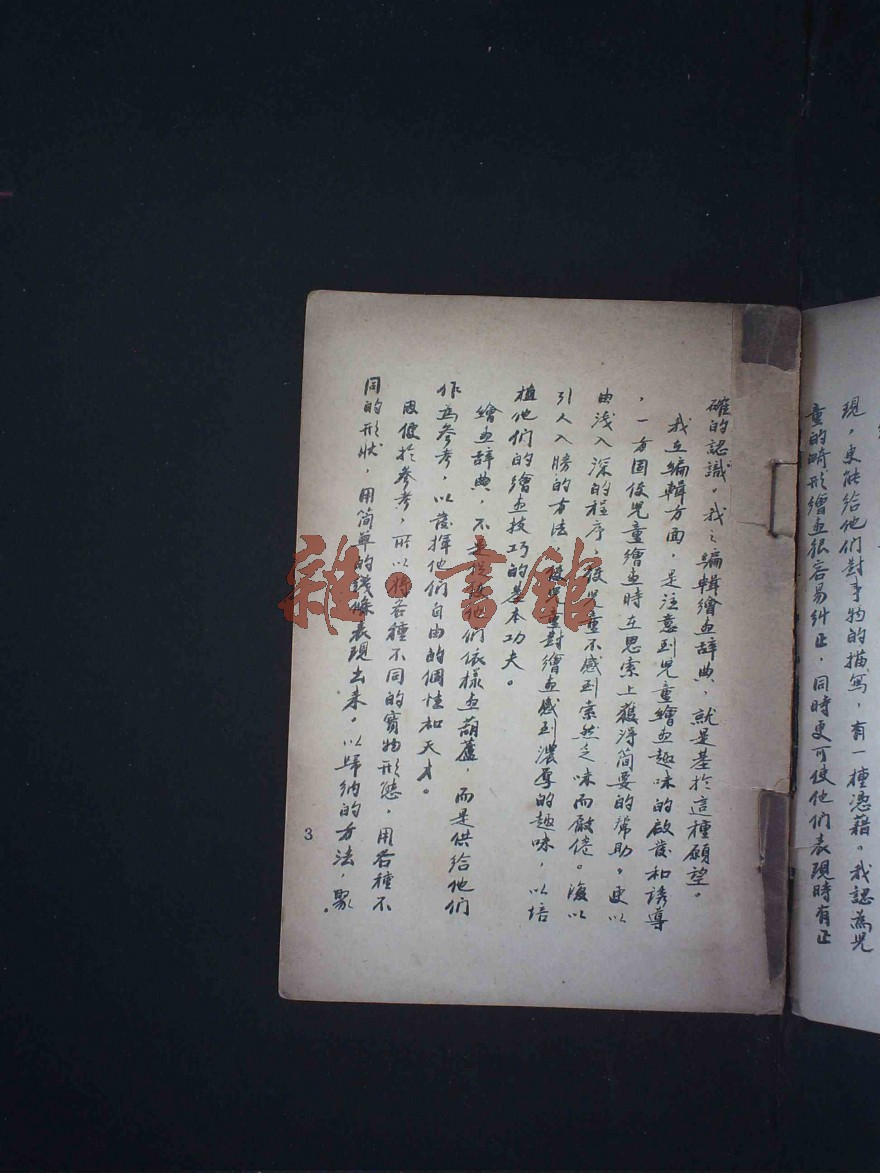 現，更能給他們對事物的描寫，有一種憑藉。我認為兒
童的畸形繪画很容易糾正，同時更可使他們表現時有正
確的認識。我之編輯繪画辞典，就是基於這種願望。
我在編輯方面，是注意到兒童繪画趣味的啟發和誘導
，一方固使兒童繪画時在思索上獲得简要的帮助。更以
由淺入深的程序，使兒童不感到索然乏味而厭倦。復以
引人入勝的方法，使兒童對繪画感到濃厚的趣味，以培
植他們的繪画技巧的基本功夫。
繪画辞典，不是提放他們依樣画葫蘆，而是供給他們
作為參考，以發揮他們自由的個性和天才。
因便於參考，所以將各種不同的實物形態，用各種不
同的形狀，用简單的綫條表現出来。以歸納的方法，聚
3
雜·書館